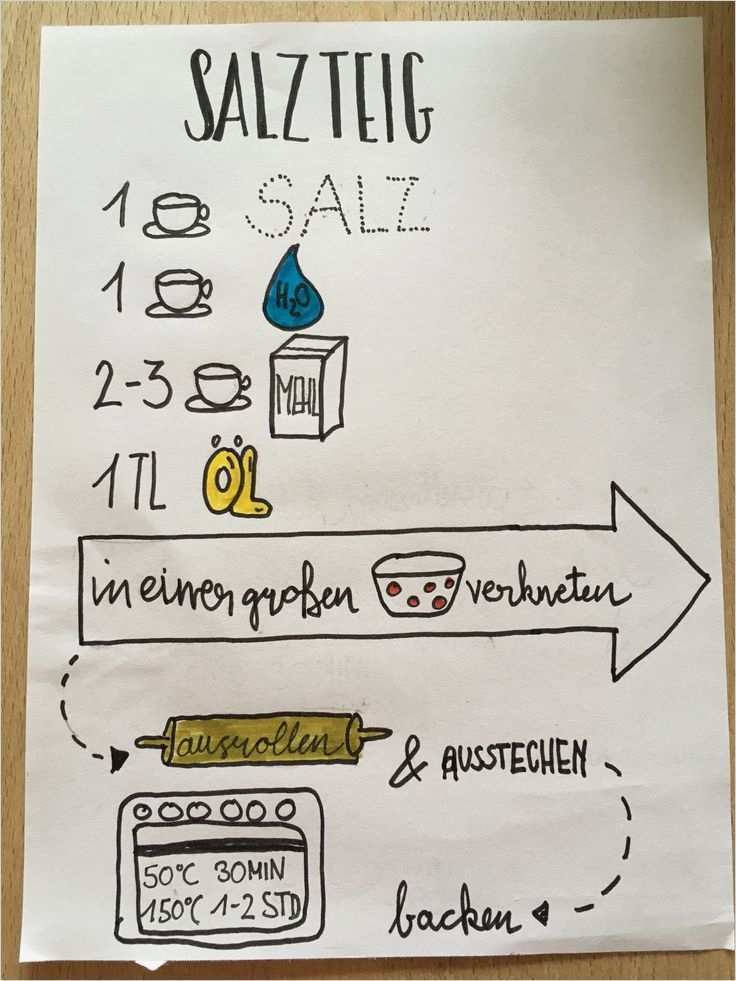 SALZTEIG
1 SALZ
1 H2O
2-3 MEHL
1 TL ÖL
in einer großen verkneten
ausrollen & AUSSTECHEN
50°C 30MIN
150°C 1-2 STD
backen